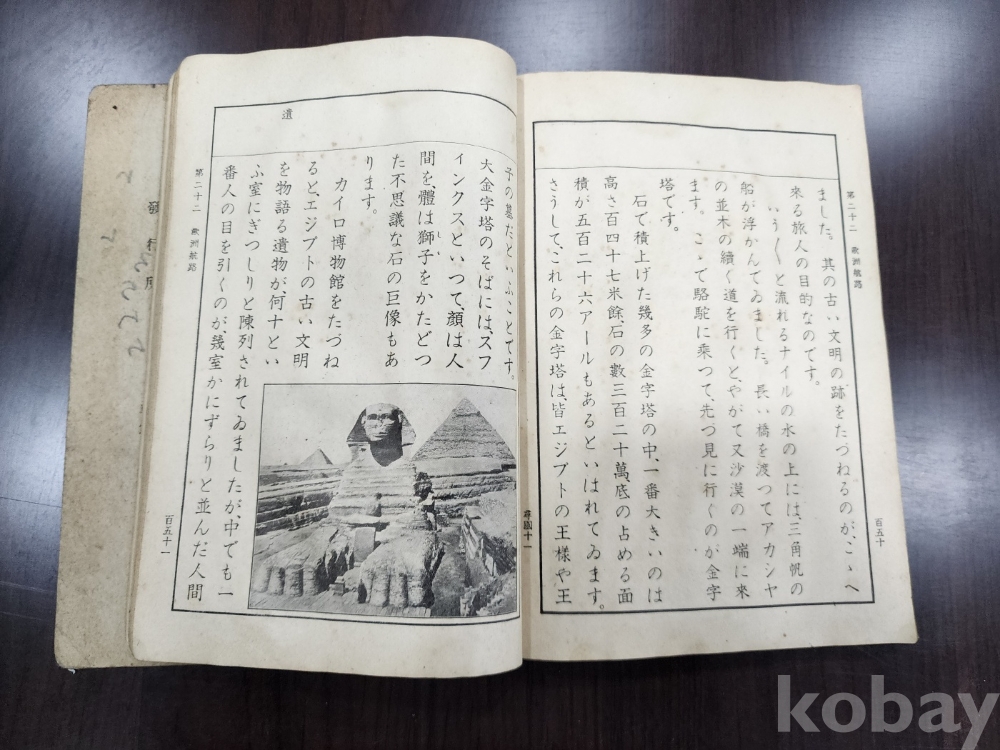 第二十二 歐洲航路
百五十
ました。其の古い文明の跡をたづねるのが、こゝへ
來る旅人の目的なのです。
いう〳〵と流れるナイルの水の上には、三角帆の
船が浮かんでゐました。長い橋を渡つてアカシヤ
の並木の續く道を行くと、やがて又沙漠の一端に來
ます。こゝで駱駝に乘つて、先づ見に行くのが金字
塔です。
石で積上げた幾多の金字塔の中、一番大きいのは
高さ百四十七米餘石の數三百二十萬底の占める面
積が五百二十六アールもあるといはれてゐます。
さうして、これらの金字塔は、皆エジプトの王樣や王
尋國十一
子の墓だといふことです。
大金字塔のそばには、スフ
ィンクスといつて、顏は人
間を、體は獅子をかたどつ
しし
た不思議な石の巨像もあ
ります。
カイロ博物館をたづね
ると、エジプトの古い文明
を物語る遺物が、何十とい
ふ室にぎつしりと陳列されてゐましたが、中でも一
番人の目を引くのが、幾室かにずらりと並んだ人間
遺
第二十二 歐洲航路
百五十一
發行所
kobay